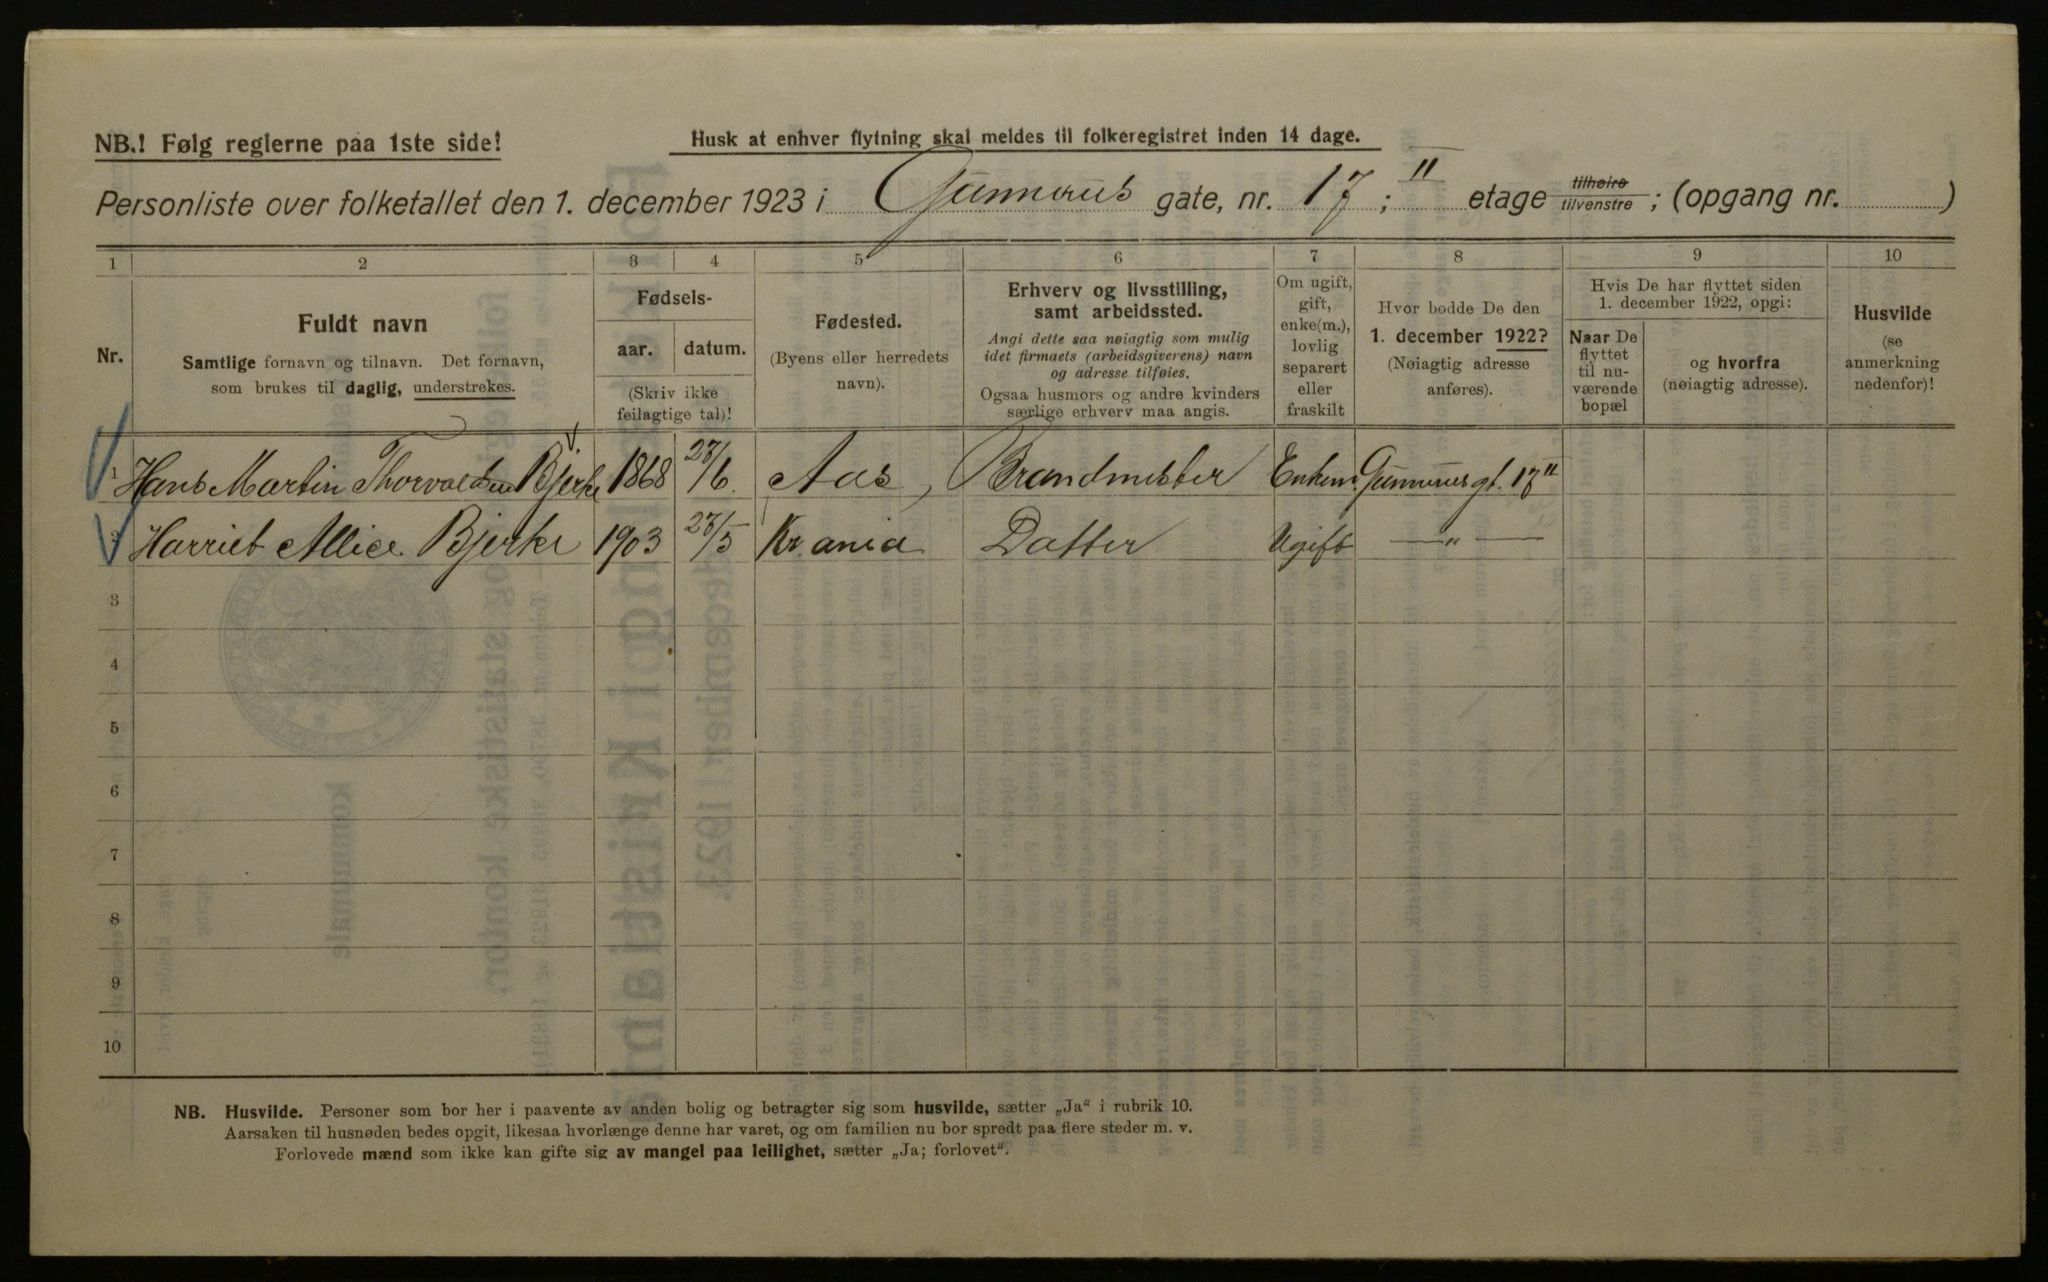 NB.! Følg reglerne paa 1ste side!
Husk at enhver flytning skal meldes til folkeregistret inden 14 dage.
Personliste over folketallet den 1. december 1923 i Gunnerus gate, nr. 17; II etage tilhøire tilvenstre; (opgang nr. )
1 2 3 4 5 6 7 8 9 10
Nr.
Fuldt navn
Samtlige fornavn og tilnavn. Det fornavn,
som brukes til daglig, understrekes.
Fødsels-
aar. datum.
(Skriv ikke
feilagtige tal)!
Fødested.
(Byens eller herredets
navn).
Erhverv og livsstilling,
samt arbeidssted.
Angi dette saa nøiagtig som mulig
idet firmaets (arbeidsgiverens) navn
og adresse tilføies.
Ogsaa husmors og andre kvinders
særlige erhverv maa angis.
Om ugift,
gift,
enke(m.),
lovlig
separert
eller
fraskilt
Hvor bodde De den
1. december 1922?
(Nøiagtig adresse
anføres).
Hvis De har flyttet siden
1. december 1922, opgi:
Naar De
flyttet
til nu-
værende
bopæl
og hvorfra
(nøiagtig adresse).
Husvilde
(se
anmerkning
nedenfor)!
1 Hans Martin Thorvaldsen Bjerke 1868 /6 Aas, Brandmester Enkem. Gunnerusgt. 17 II
2 Harriet Allice Bjerke 1903 /5 Kr.ania Datter Ugift —„—
3
4
5
6
7
8
9
10
NB. Husvilde. Personer som bor her i paavente av anden bolig og betragter sig som husvilde, sætter „Ja“ i rubrik 10.
Aarsaken til husnøden bedes opgit, likesaa hvorlænge denne har varet, og om familien nu bor spredt paa flere steder m. v.
Forlovede mænd som ikke kan gifte sig av mangel paa leilighet, sætter „Ja; forlovet“.